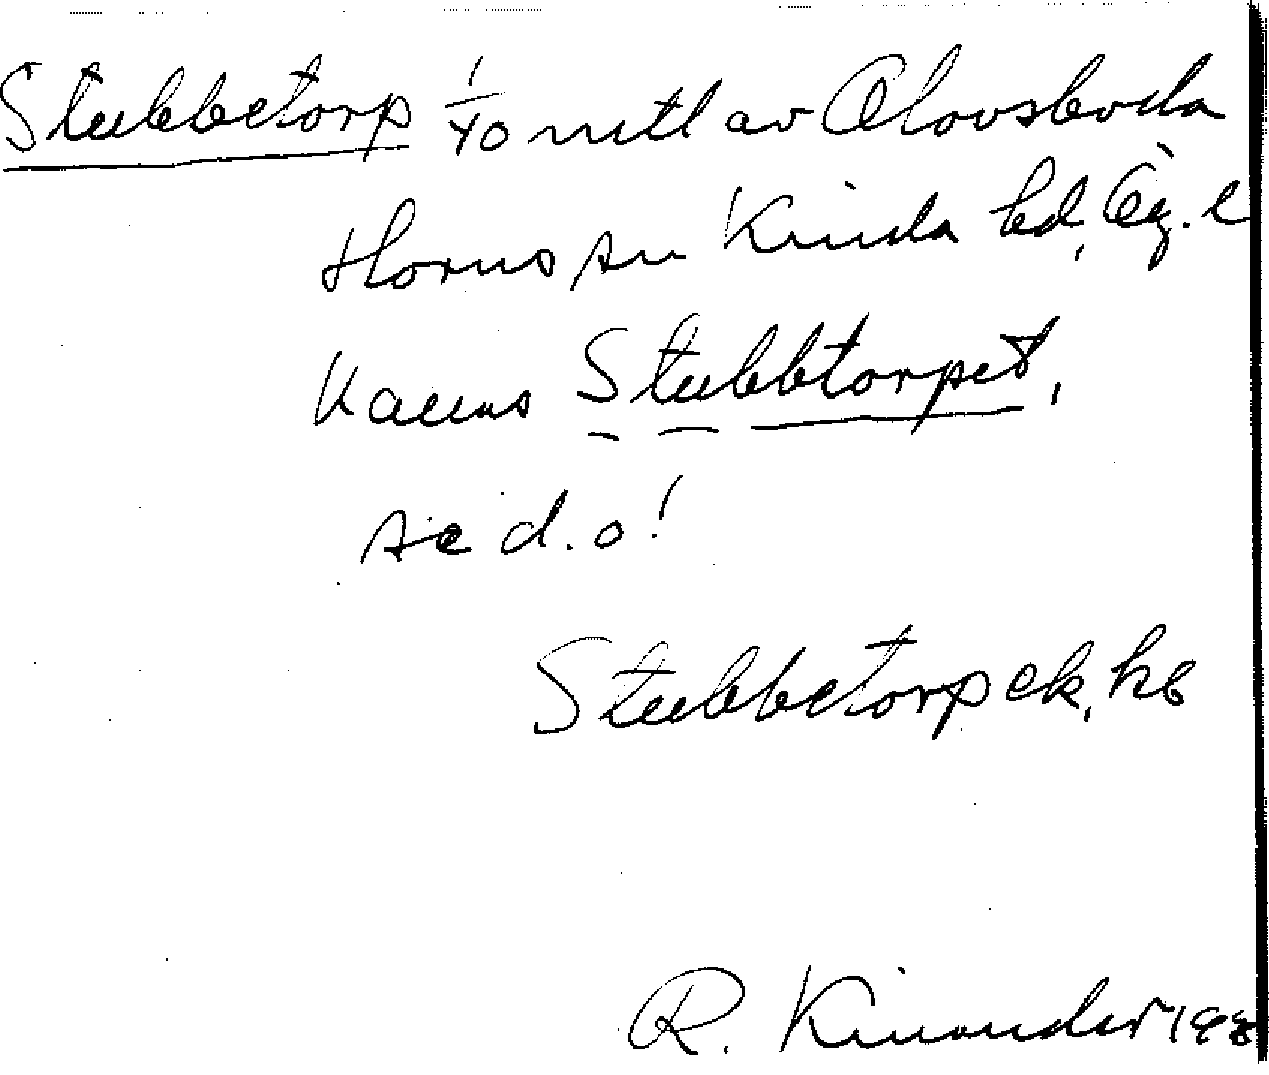 Stubbetorp 1/40 mtl av Olovsboda
Horns sn Kinda hd, Ög. l
Kallas Stubbtorpet,
se d. o!
Stubbetorp ek, hb
R. Kinander 193